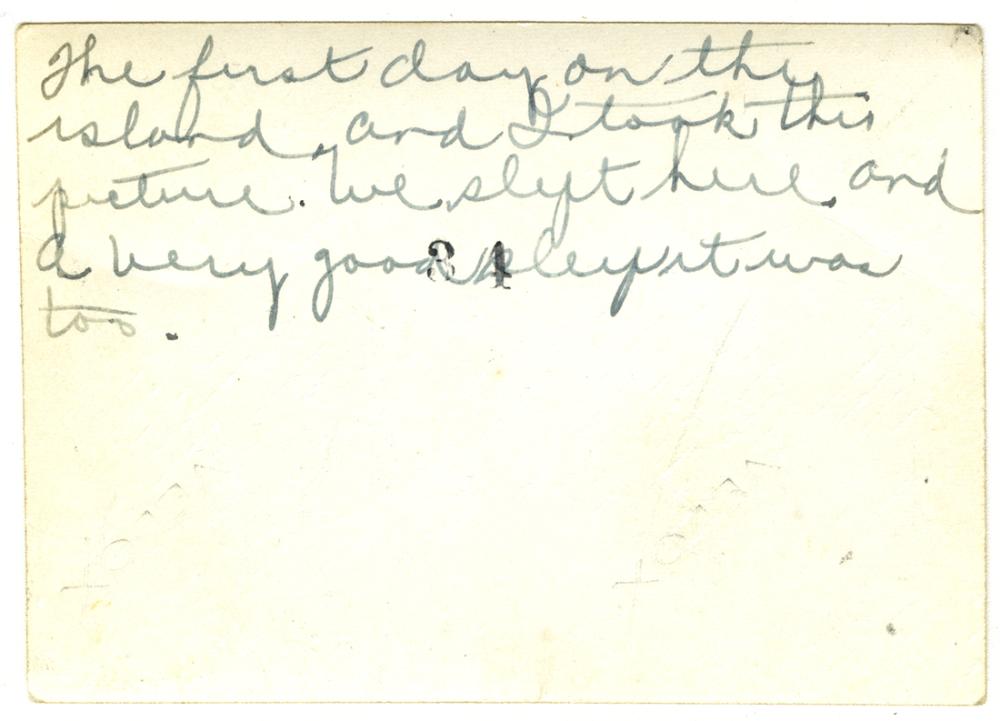 The first day on the
island, and I took this
picture. We slept here and
a very good sleep it was
too.
34